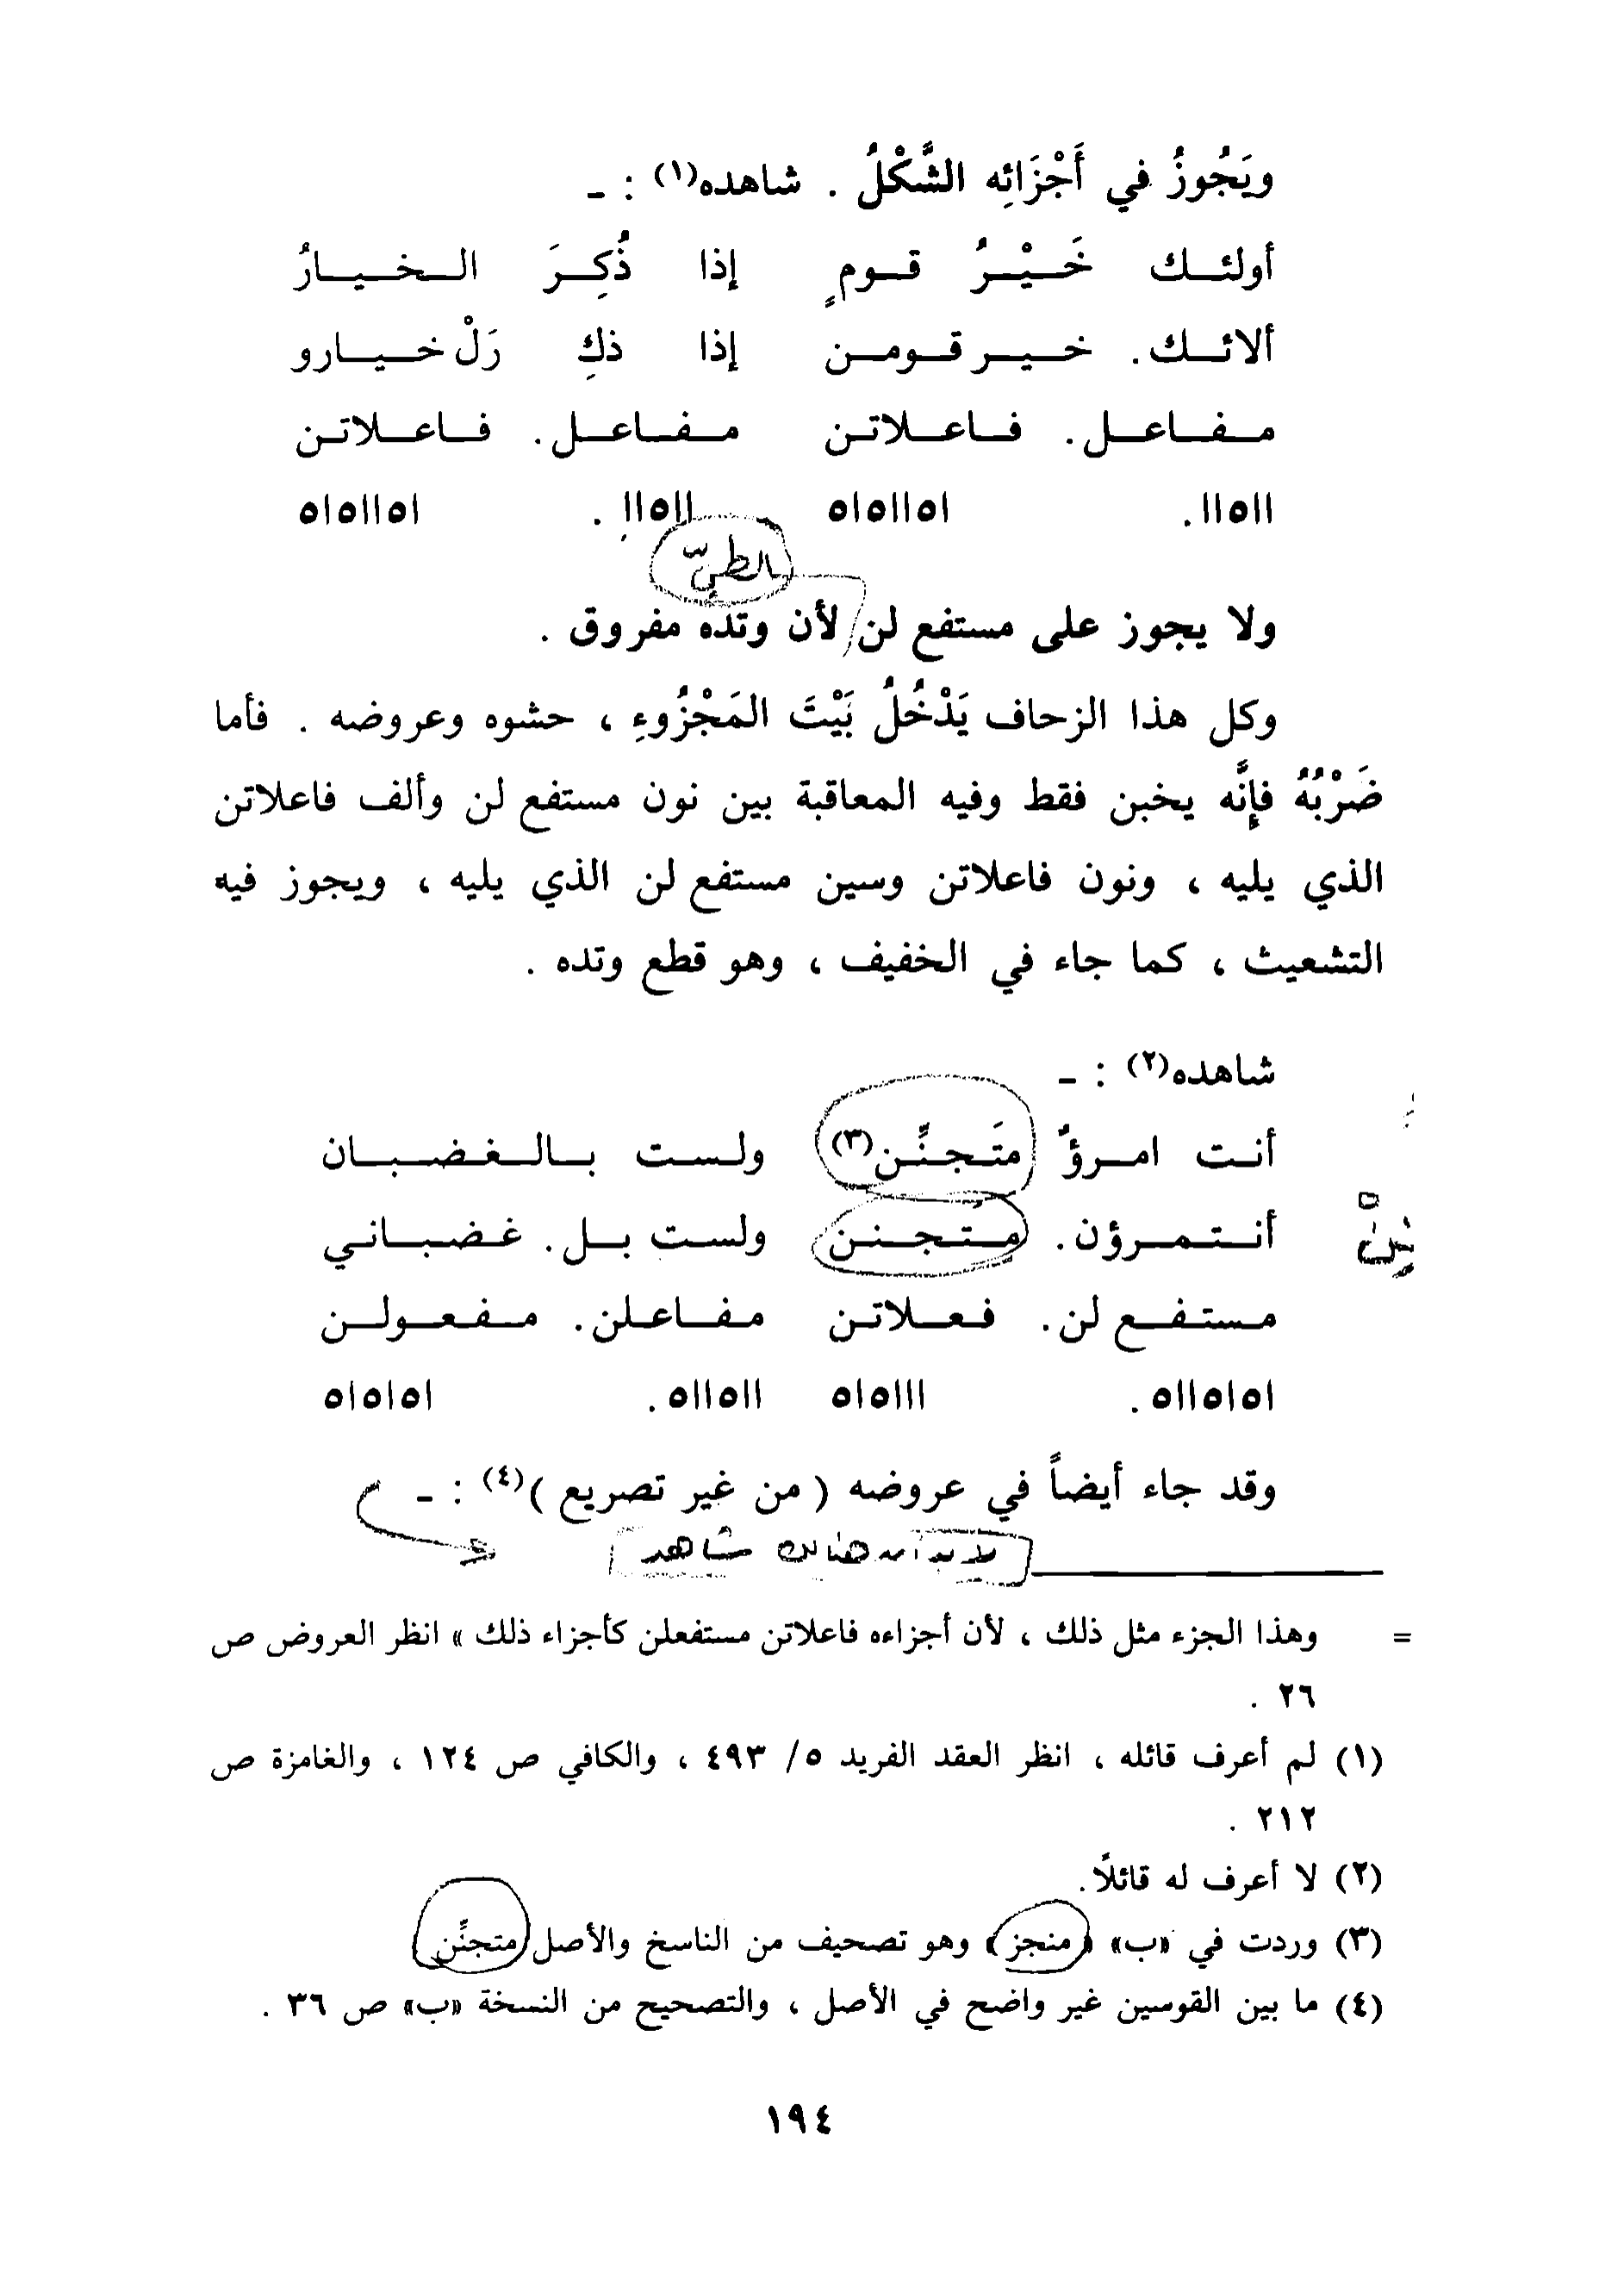 ويَجُوزُ في أَجْزَائِه الشَّكْلُ . شاهده(١) : ـ
أولئـك خَـيْـرُ قـومٍ إذا ذُكِـرَ الـخـيـارُ
ألائـك. خـيـر قـومـن إذا ذكِ رَلْ خـيـارو
مـفـاعـل. فـاعـلاتـن مـفـاعـل. فـاعـلاتـن
١١٥١١. ١٥١١٥١٥ ١١٥١١. ١٥١١٥١٥
الطيّ
ولا يجوز على مستفع لن لأن وتده مفروق .
وكل هذا الزحاف يَدْخُلُ بَيْتَ المَجْزُوءِ ، حشوه وعروضه . فأما
ضَرْبُهُ فإنَّه يخبن فقط وفيه المعاقبة بين نون مستفع لن وألف فاعلاتن
الذي يليه ، ونون فاعلاتن وسين مستفع لن الذي يليه ، ويجوز فيه
التشعيث ، كما جاء في الخفيف ، وهو قطع وتده .
شاهده(٢) : ـ
أنـت امـرؤٌ مـتَـجـنِّـن(٣) ولـسـت بـالـغـضـبـان
أنـتـمـرؤن. مـتـجـنـن ولسـت بـل. غـضـبـانـي
مـستـفـع لن. فـعـلاتـن مـفـاعـلن. مـفـعـولـن
١٥١٥١١٥. ١١١٥١٥ ١١٥١١٥. ١٥١٥١٥
وقد جاء أيضاً في عروضه ( من غير تصريع )(٤) : ـ
لا بد أن هنالك شاهد
= وهذا الجزء مثل ذلك ، لأن أجزاءه فاعلاتن مستفعلن كأجزاء ذلك » انظر العروض ص
٢٦ .
(١) لم أعرف قائله ، انظر العقد الفريد ٥/ ٤٩٣ ، والكافي ص ١٢٤ ، والغامزة ص
٢١٢ .
(٢) لا أعرف له قائلاً.
(٣) وردت في «ب» «منجز» وهو تصحيف من الناسخ والأصل متجنِّن
(٤) ما بين القوسين غير واضح في الأصل ، والتصحيح من النسخة «ب» ص ٣٦ .
١٩٤